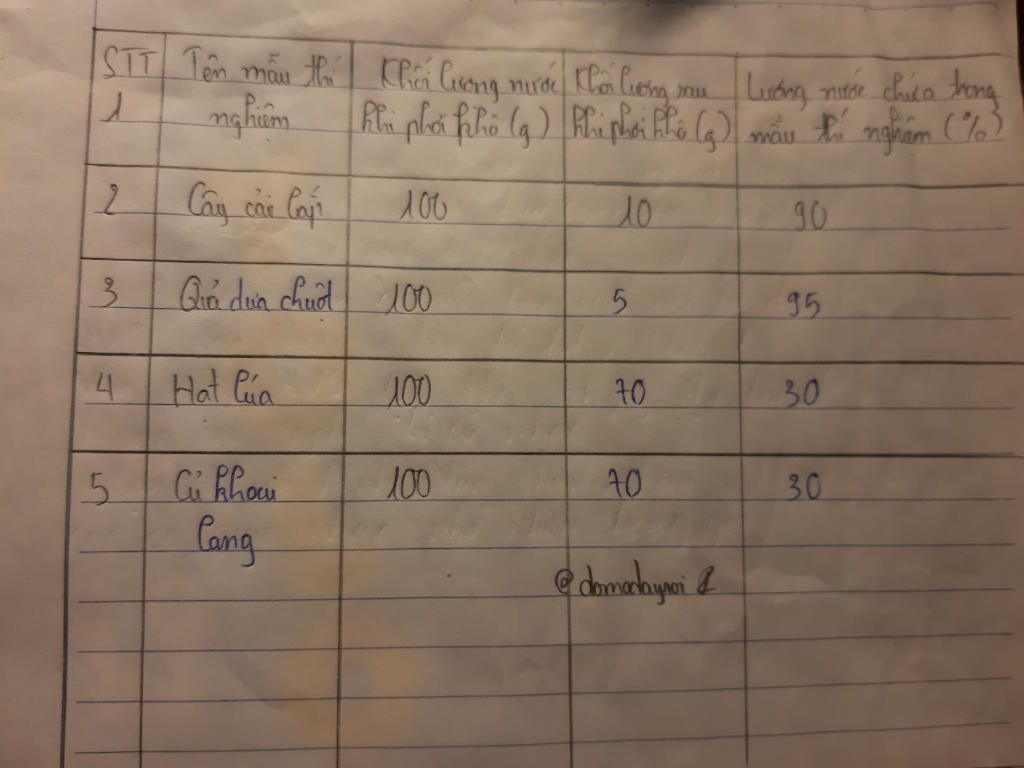 STT Tên mẫu thí Khối lương nước Khối lương sau Lương nước chứa trong
1 nghiệm khi phơi khô (g) khi phơi khô (g) mẫu thí nghiệm (%)
2 Cây cải bắp 100 10 90
3 Quả dưa chuột 100 5 95
4 Hat lúa 100 70 30
5 Củ khoai 100 70 30
lang